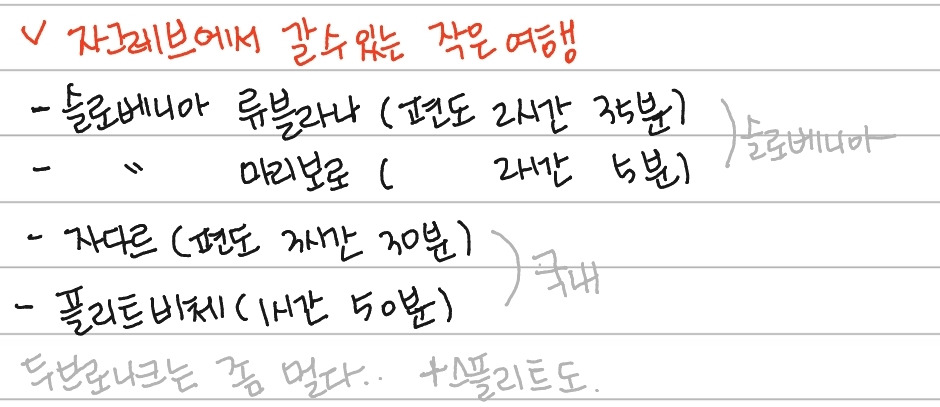 ✓ 자그레브에서 갈 수 있는 작은 여행
- 슬로베니아 류블라나 (편도 2시간 35분)
- 〃 마리보로 ( 2시간 5분) ) 슬로베니아
- 자다르 (편도 3시간 30분)
- 플리트비체 (1시간 50분) ) 국내
두브로나크는 좀 멀다.. +스플리트도.